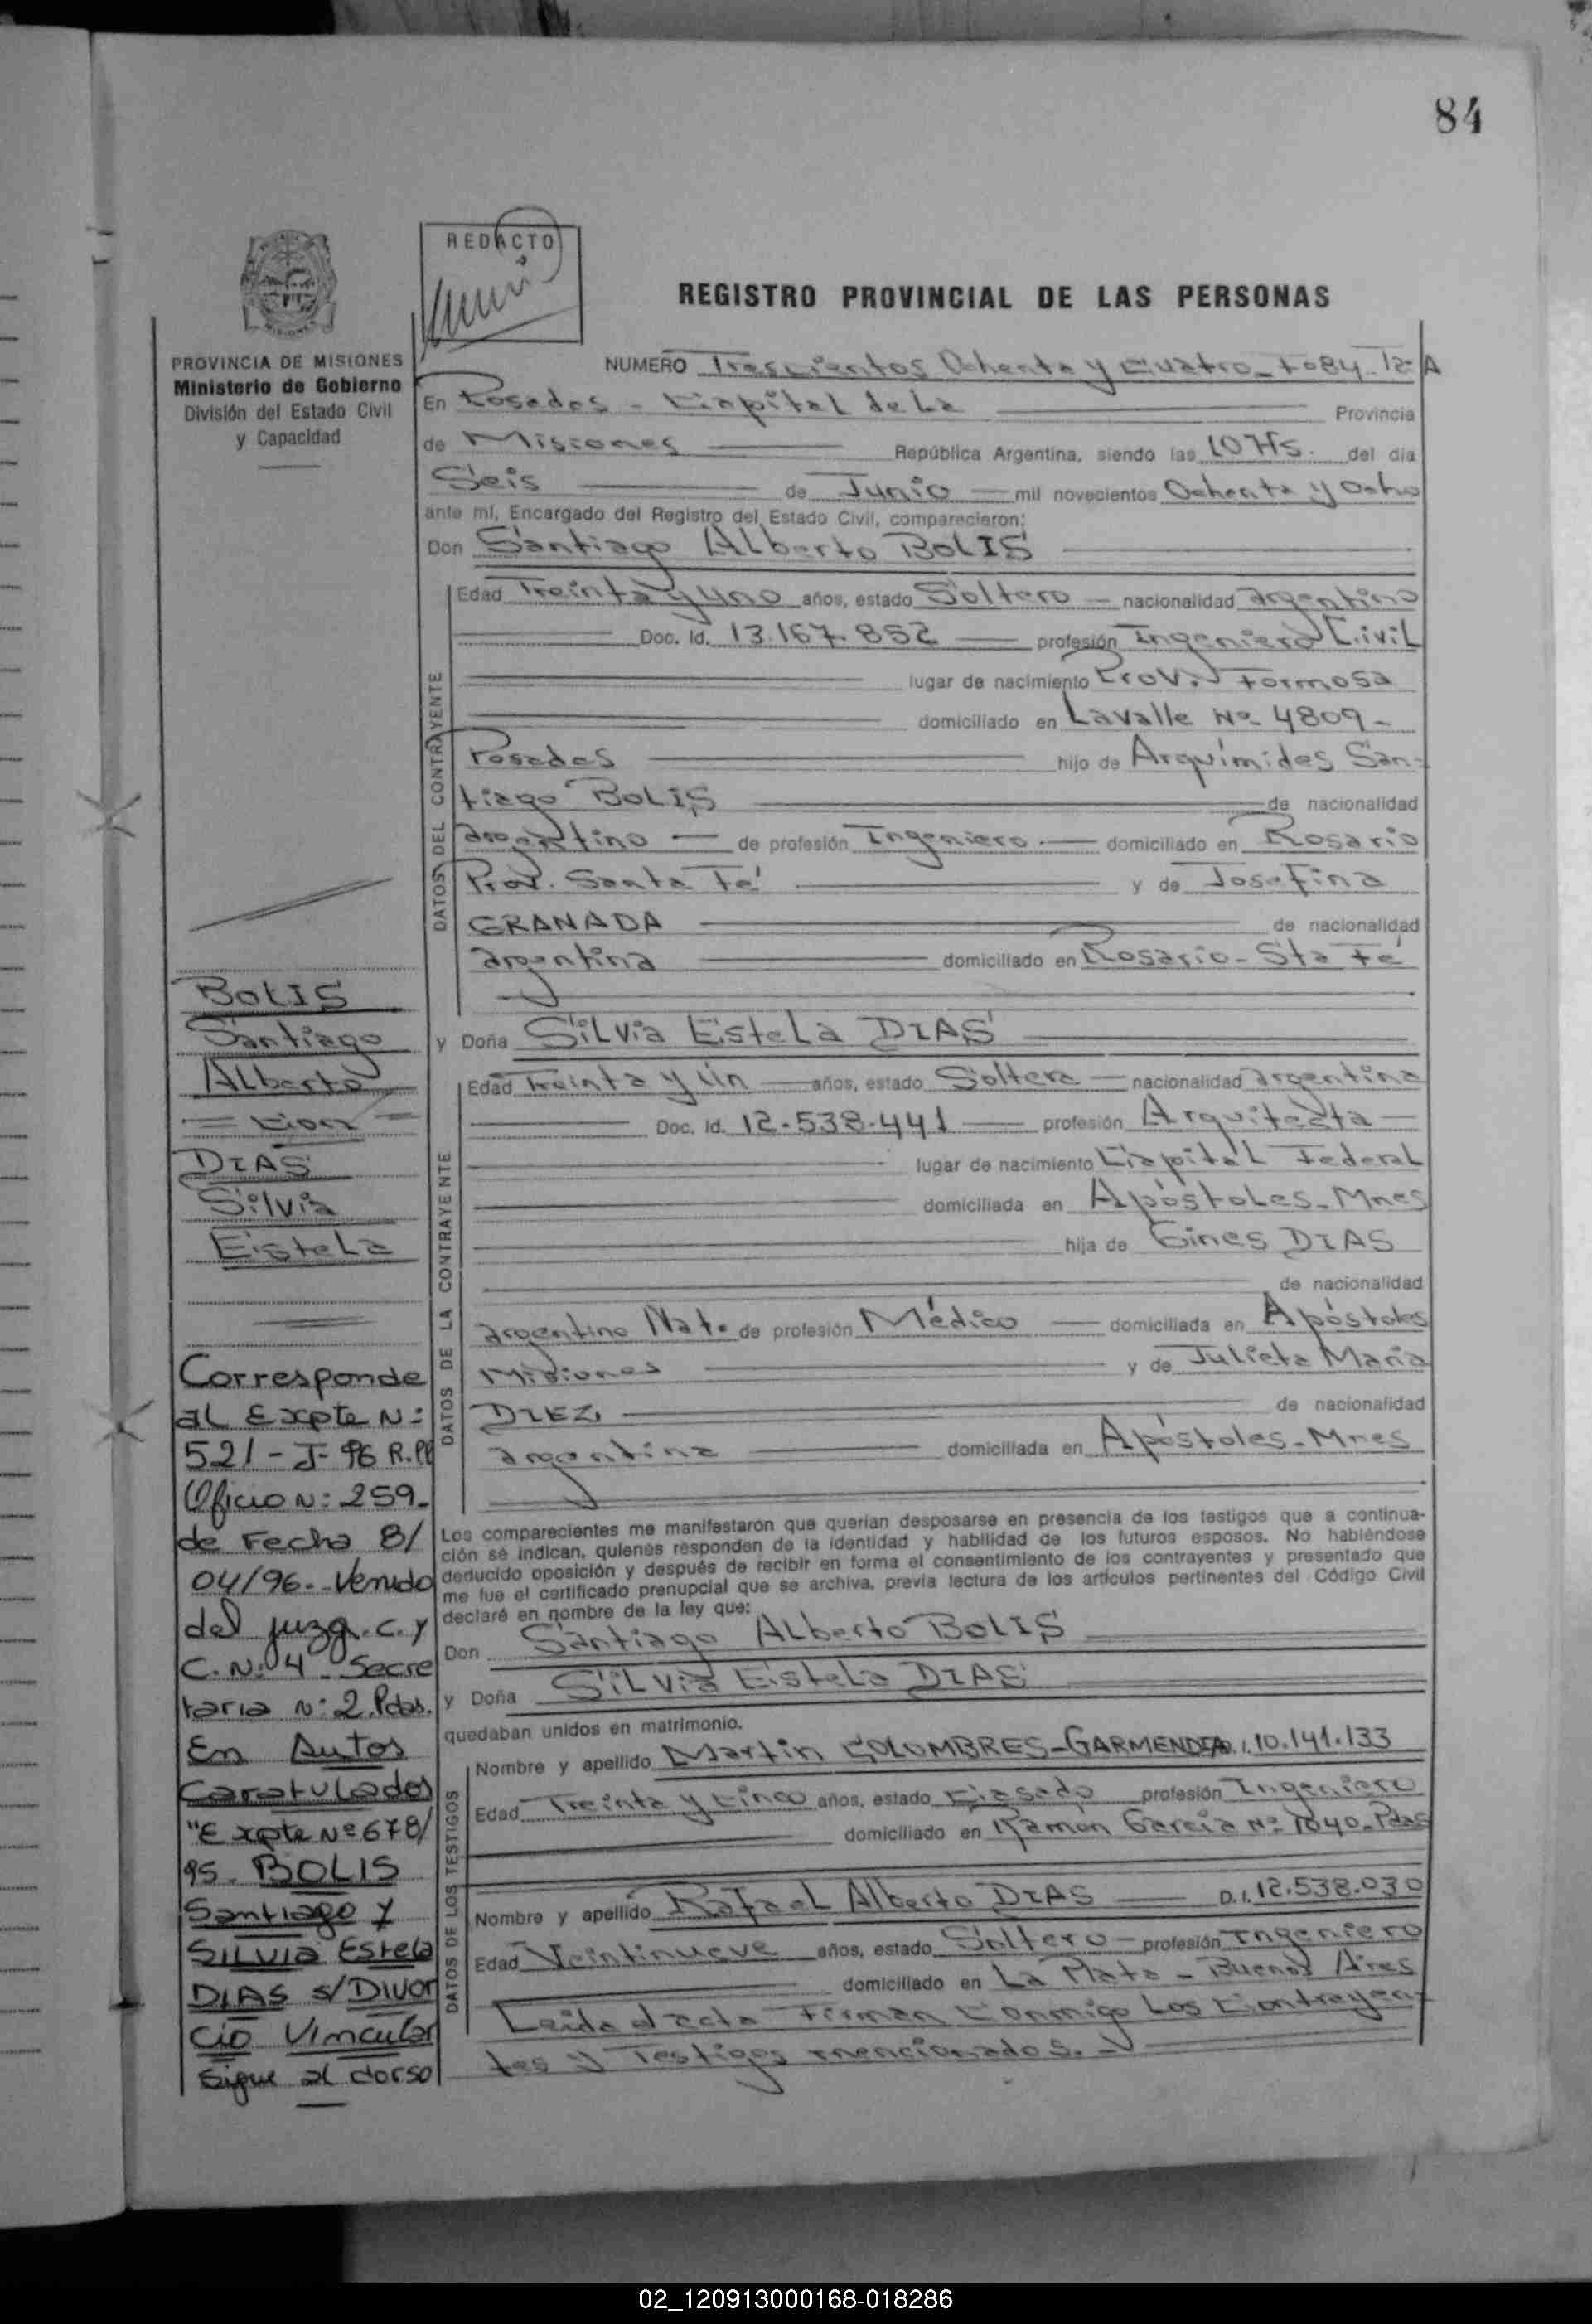 84
REDACTO
REGISTRO PROVINCIAL DE LAS PERSONAS
PROVINCIA DE MISIONES
Ministerio de Gobierno
División del Estado Civil
y Capacidad
NUMERO Trescientos Ochenta y Cuatro - Fº 84 - Tº 2- A
En Posadas - Capital de La Provincia
de Misiones República Argentina, siendo las 10 Hs. del día
Seis de Junio mil novecientos Ochenta y Ocho
ante mí, Encargado del Registro del Estado Civil, comparecieron:
Don Santiago Alberto BOLIS
DATOS DEL CONTRAYENTE
Edad Treinta y uno años, estado Soltero nacionalidad argentino
Doc. Id. 13.167.852 profesión Ingeniero Civil
lugar de nacimiento Prov. Formosa
domiciliado en Lavalle Nº 4809-
Posadas hijo de Arquímides San-
tiago BOLIS de nacionalidad
argentino de profesión Ingeniero domiciliado en Rosario
Prov. Santa Fé y de Josefina
GRANADA de nacionalidad
argentina domiciliado en Rosario - Sta Fé
y Doña Silvia Estela DIAS
DATOS DE LA CONTRAYENTE
Edad Treinta y Un años, estado Soltera nacionalidad argentina
Doc. Id. 12.538.441 profesión Arquitecta
lugar de nacimiento Capital Federal
domiciliada en Apóstoles - Mnes
hija de Gines DIAS
de nacionalidad
argentino Nat. de profesión Médico domiciliada en Apóstoles
Misiones y de Julieta María
DIEZ de nacionalidad
argentina domiciliada en Apóstoles - Mnes
Los comparecientes me manifestaron que querían desposarse en presencia de los testigos que a continua-
ción se indican, quienes responden de la identidad y habilidad de los futuros esposos. No habiéndose
deducido oposición y después de recibir en forma el consentimiento de los contrayentes y presentado que
me fue el certificado prenupcial que se archiva, previa lectura de los artículos pertinentes del Código Civil
declaré en nombre de la ley que:
Don Santiago Alberto BOLIS
y Doña Silvia Estela DIAS
quedaban unidos en matrimonio.
DATOS DE LOS TESTIGOS
Nombre y apellido Martin COLOMBRES-GARMENDIA D.I. 10.141.133
Edad Treinta y Cinco años, estado Casado profesión Ingeniero
domiciliado en Ramón García Nº 1040 - Pdas
Nombre y apellido Rafael Alberto DIAS D.I. 12.538.030
Edad Veintinueve años, estado Soltero - profesión Ingeniero
domiciliado en La Plata - Buenos Aires
Leída el acta Firman Conmigo Los Contrayen-
tes y Testigos mencionados. -
BOLIS
Santiago
Alberto
= Con =
DIAS
Silvia
Estela
Corresponde
al Expte N:
521 - J- 96 R.PP
Oficio N: 259-
de Fecha 8/
04/96.- Venido
del juzg. C. y
C. N: 4 - Secre
taria N: 2. Pdas.
En Autos
Caratulados
"Expte Nº 678/
95 - BOLIS
Santiago y
SILVIA Estela
DIAS s/Divor
cio Vincular
sigue al dorso
02_120913000168-018286